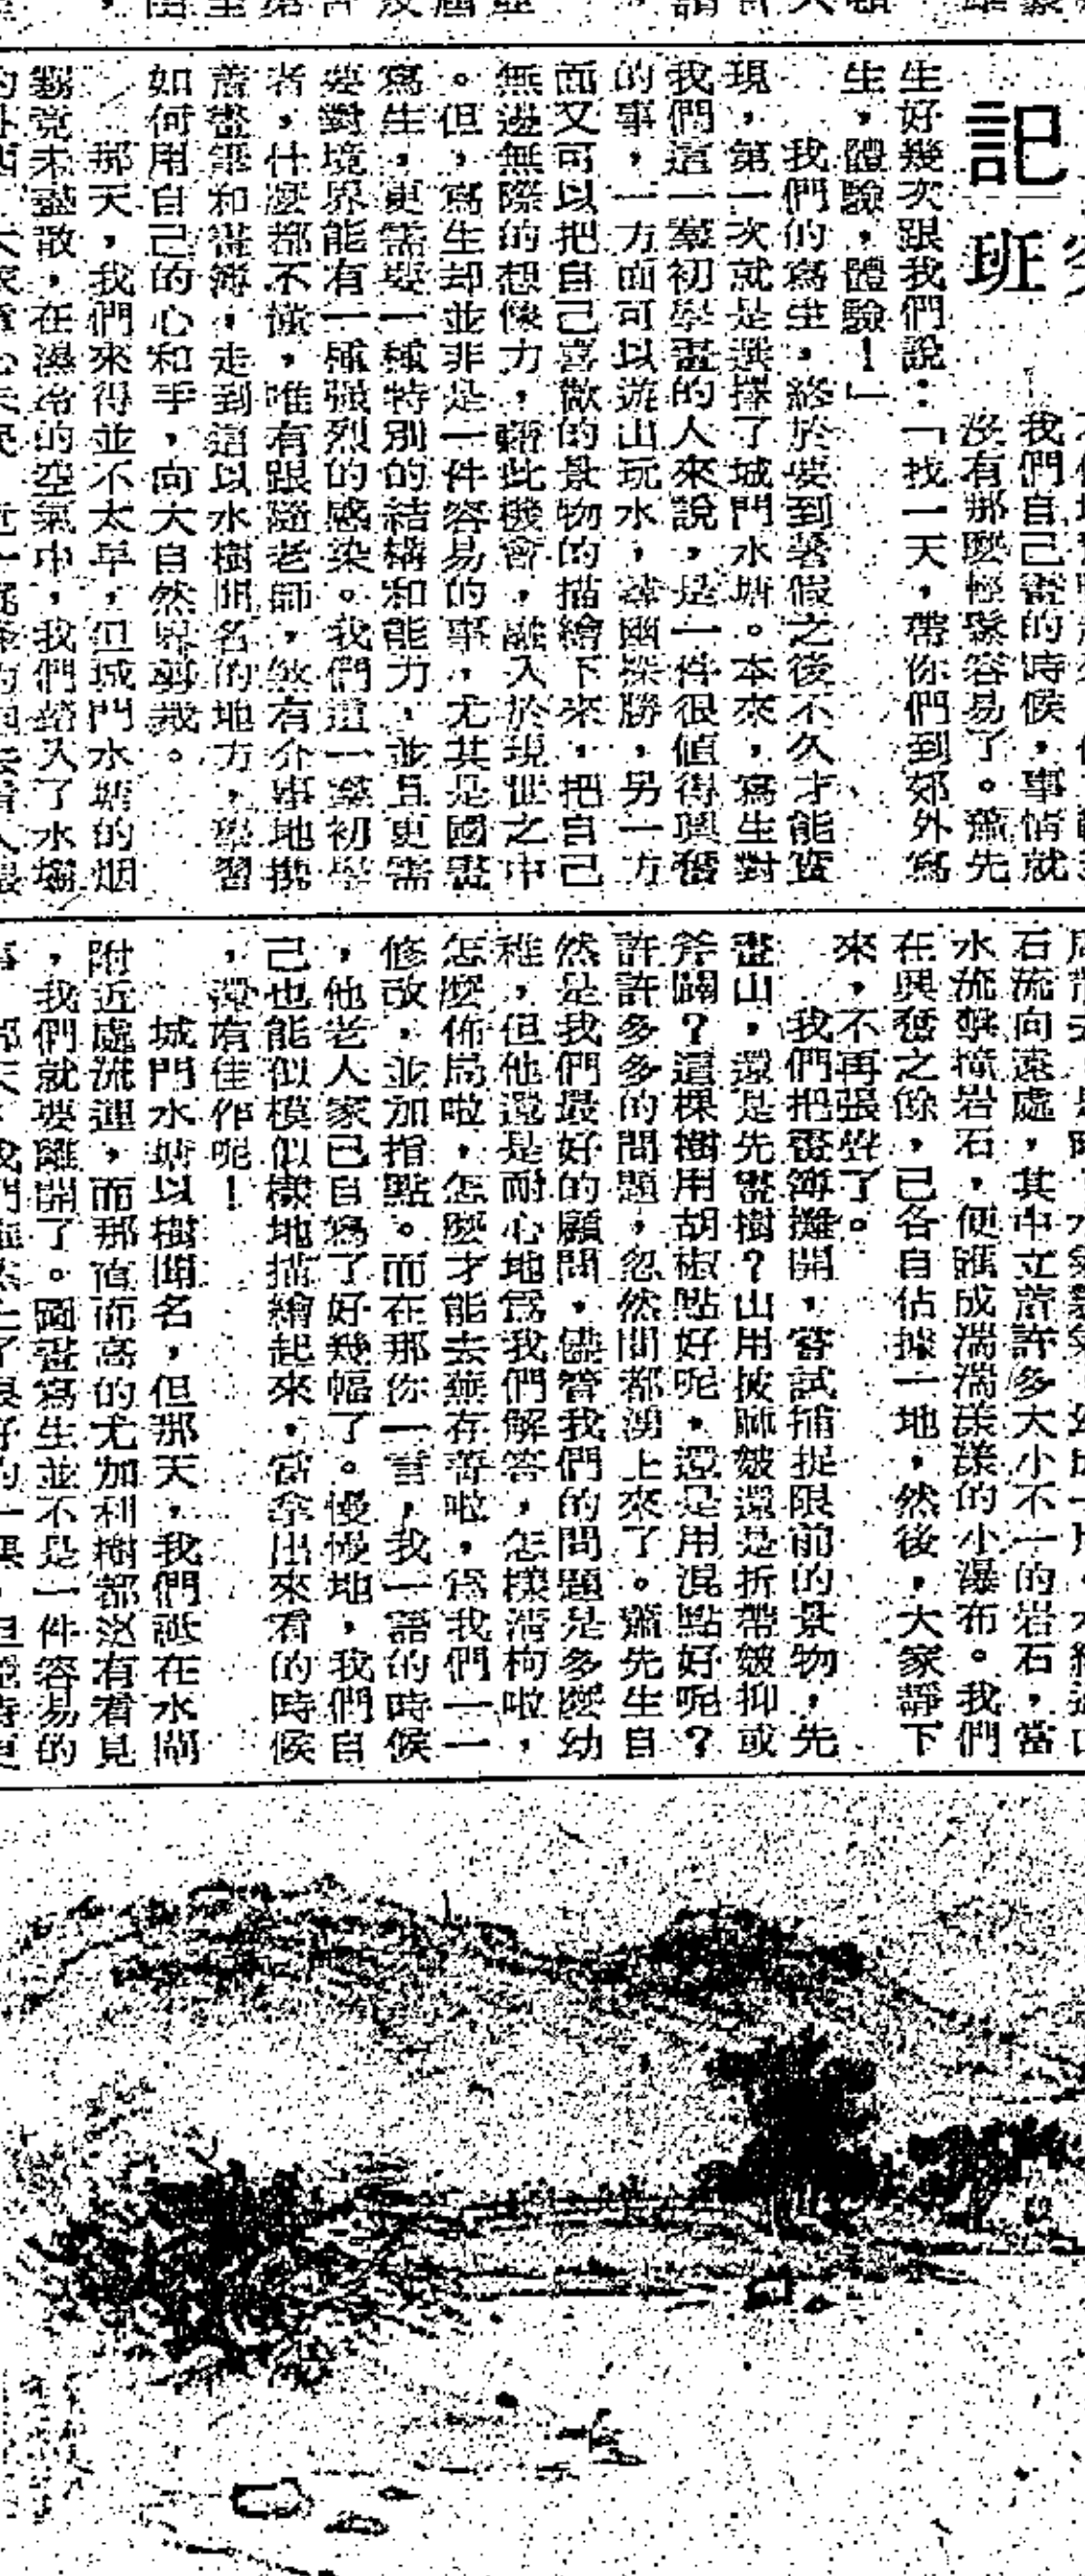 記
班
我們自己畫的時候，事情就
沒有那麼輕鬆容易了。蕭先
生好幾次跟我們說：「找一天，帶你們到郊外寫
生，體驗，體驗！」
我們的寫生，終於要到暑假之後不久才能實
現，第一次就是選擇了城門水塘。本來，寫生對
我們這一羣初學畫的人來說，是一件很值得興奮
的事，一方面可以遊山玩水，尋幽探勝，另一方
面又可以把自己喜歡的景物的描繪下來，把自己
無邊無際的想像力，藉此機會，融入於現世之中
。但，寫生却並非是一件容易的事，尤其是國畫
寫生，更需要一種特別的結構和能力，並且更需
要對境界能有一種强烈的感染。我們這一羣初學
者，什麼都不懂，唯有跟隨老師，煞有介事地携
着畫筆和畫簿，走到這以水樹聞名的地方，學習
如何用自己的心和手，向大自然界剪裁。
那天，我們來得並不太早，但城門水塘的烟
霧竟未盡散，在濕冷的空氣中，我們踏入了水塘
石流向遠處，其中立着許多大小不一的岩石，當
水流擊撞岩石，便匯成湍湍漾漾的小瀑布。我們
在興奮之餘，已各自佔據一地，然後，大家靜下
來，不再張聲了。
我們把畫簿攤開，嘗試捕捉眼前的景物，先
畫山，還是先畫樹？山用披麻皴還是折帶皴抑或
斧闢？這棵樹用胡椒點好呢，還是用混點好呢？
許許多多的問題，忽然間都湧上來了。蕭先生自
然是我們最好的顧問，儘管我們的問題是多麼幼
稚，但他還是耐心地爲我們解答，怎樣清枸啦，
怎麼佈局啦，怎麼才能去蕪存菁啦，爲我們一一
修改，並加指點。而在那你一言，我一語的時候
，他老人家已自寫了好幾幅了。慢慢地，我們自
己也能似模似樣地描繪起來，當拿出來看的時候
，還有佳作呢！
城門水塘以樹聞名，但那天，我們祗在水閘
附近處流連，而那直而高的尤加利樹都沒有看見
，我們就要離開了。國畫寫生並不是一件容易的